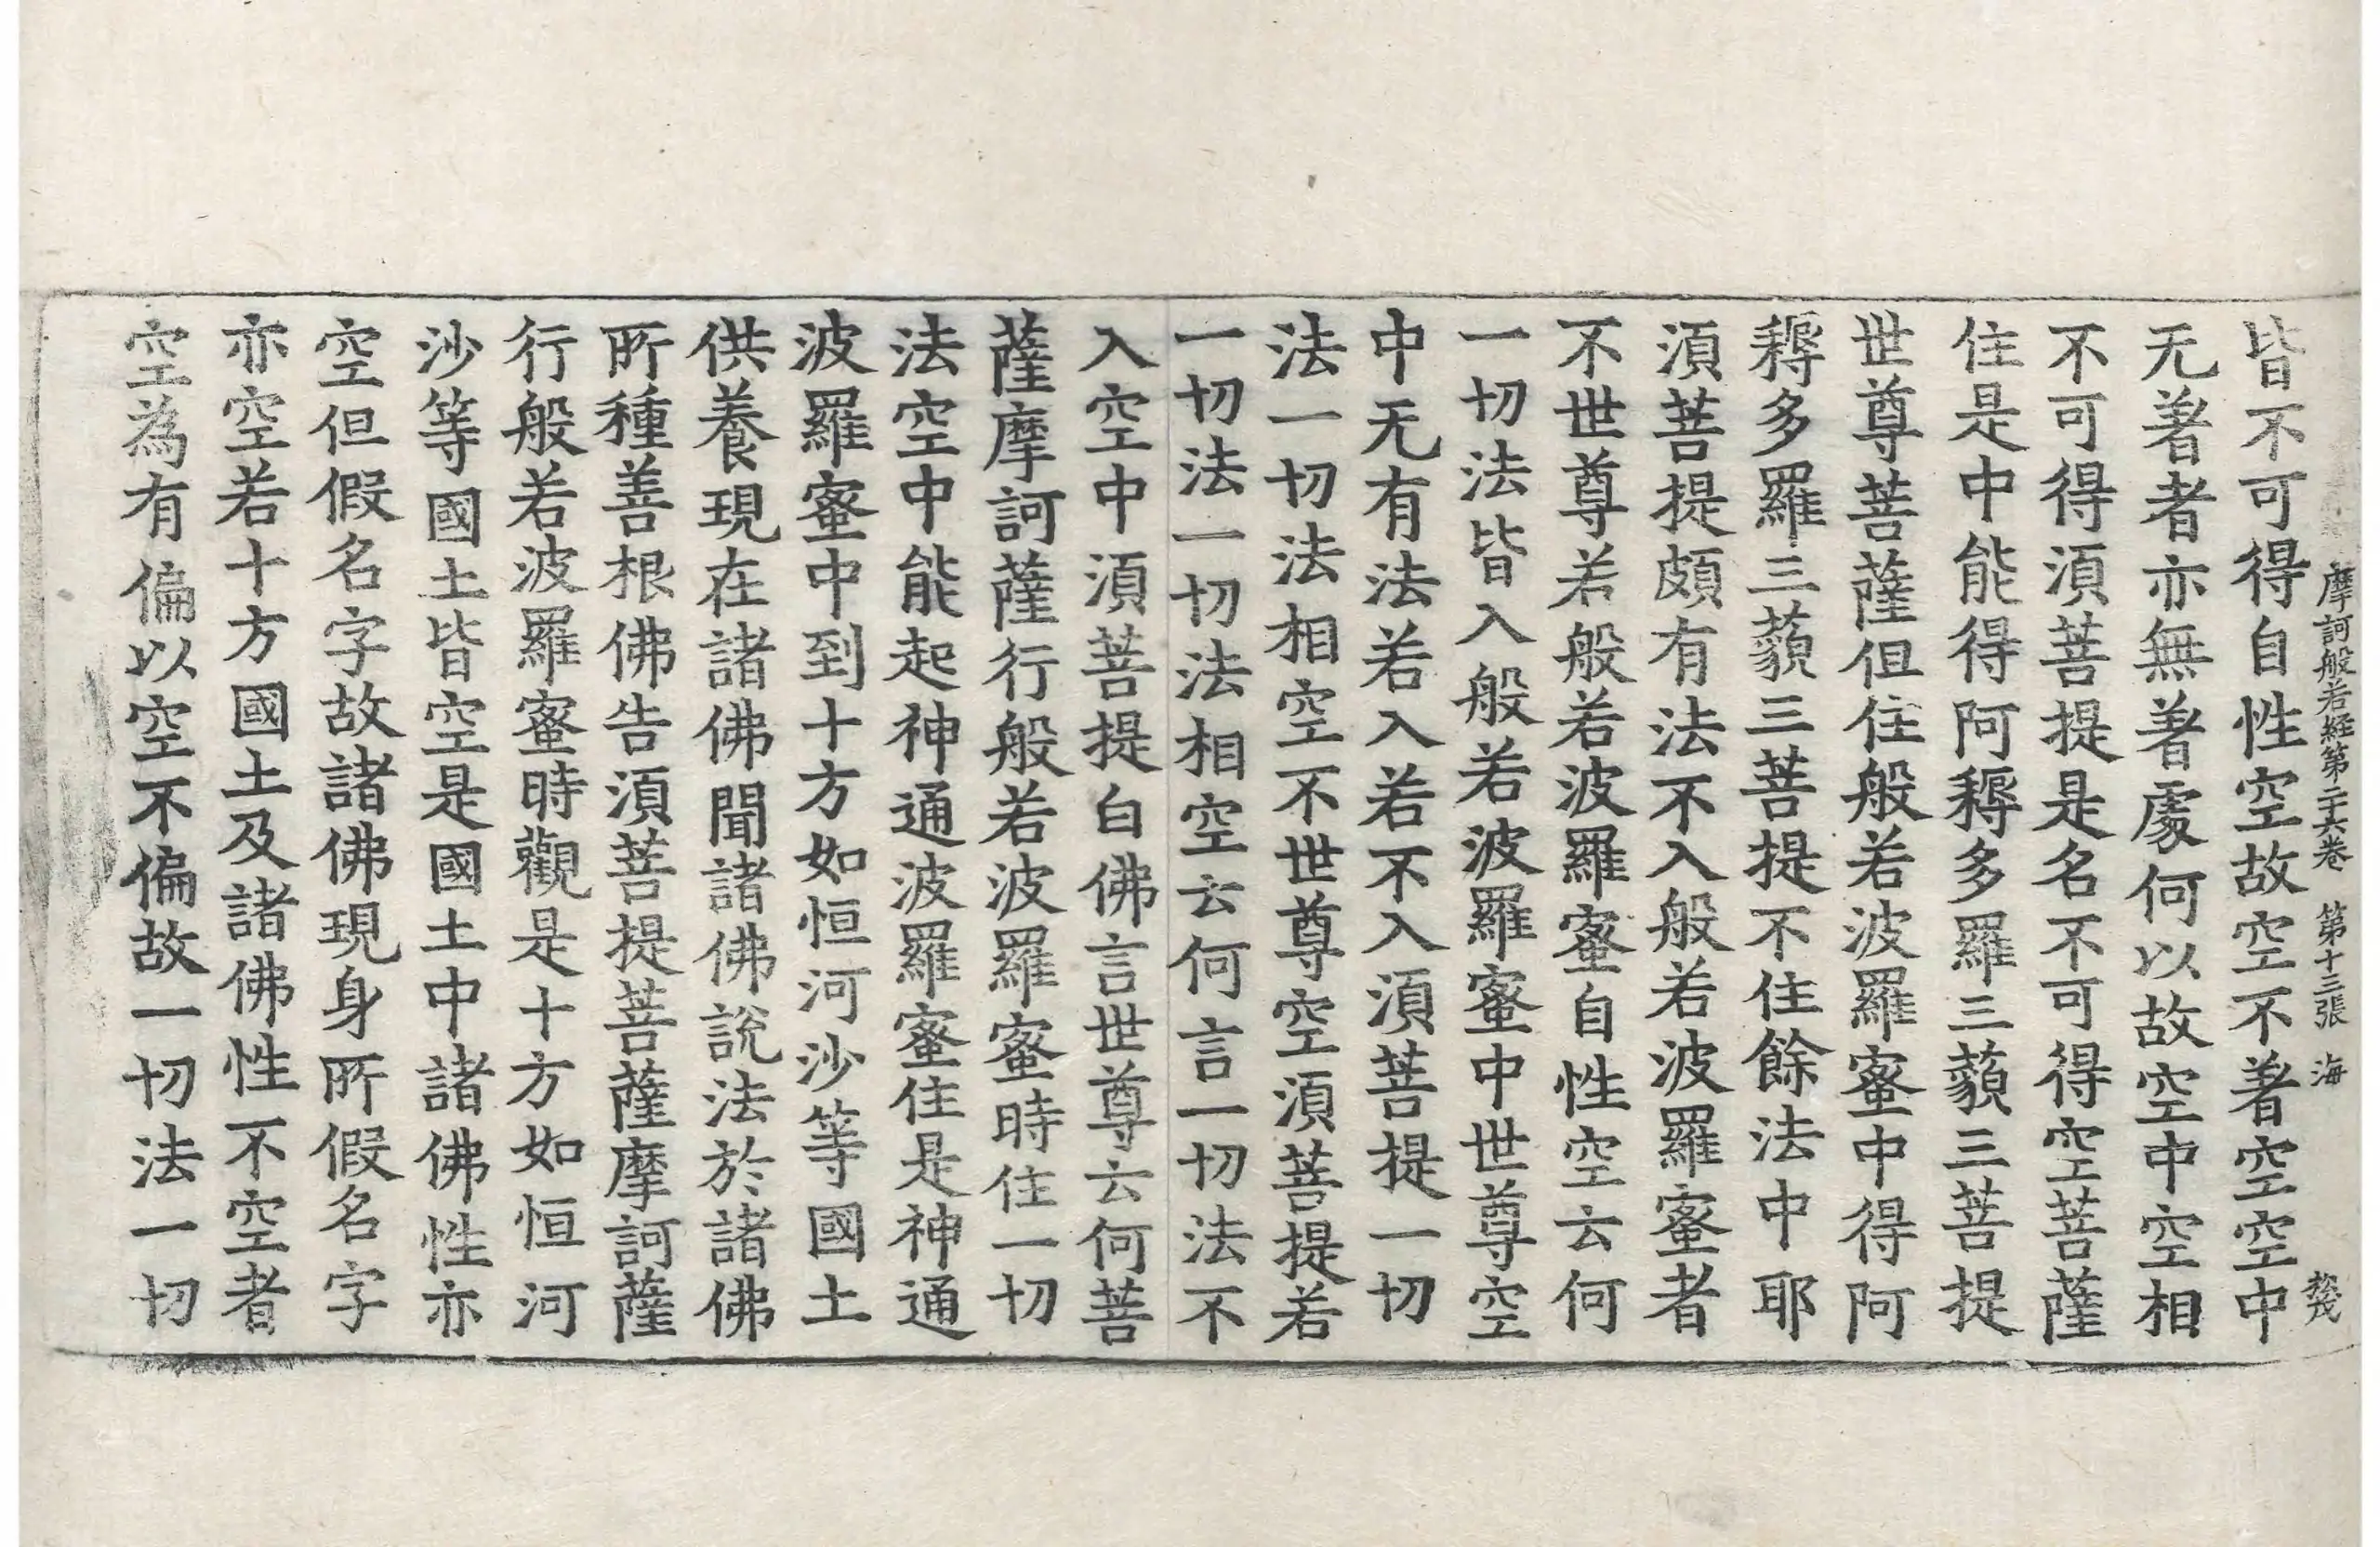 摩訶般若経第二十六卷　第十三張　海
皆不可得自性空故空不著空空中
无著者亦無著處何以故空中空相
不可得湏菩提是名不可得空菩薩
住是中能得阿耨多羅三藐三菩提
世尊菩薩但住般若波羅蜜中得阿
耨多羅三藐三菩提不住餘法中耶
湏菩提頗有法不入般若波羅蜜者
不世尊若般若波羅蜜自性空云何
一切法皆入般若波羅蜜中世尊空
中无有法若入若不入湏菩提一切
法一切法相空不世尊空湏菩提若
一切法一切法相空云何言一切法不
入空中湏菩提白佛言世尊云何菩
薩摩訶薩行般若波羅蜜時住一切
法空中能起神通波羅蜜住是神通
波羅蜜中到十方如恒河沙等國土
供養現在諸佛聞諸佛說法於諸佛
所種善根佛告湏菩提菩薩摩訶薩
行般若波羅蜜時觀是十方如恒河
沙等國土皆空是國土中諸佛性亦
空但假名字故諸佛現身所假名字
亦空若十方國土及諸佛性不空者
空為有偏以空不偏故一切法一切